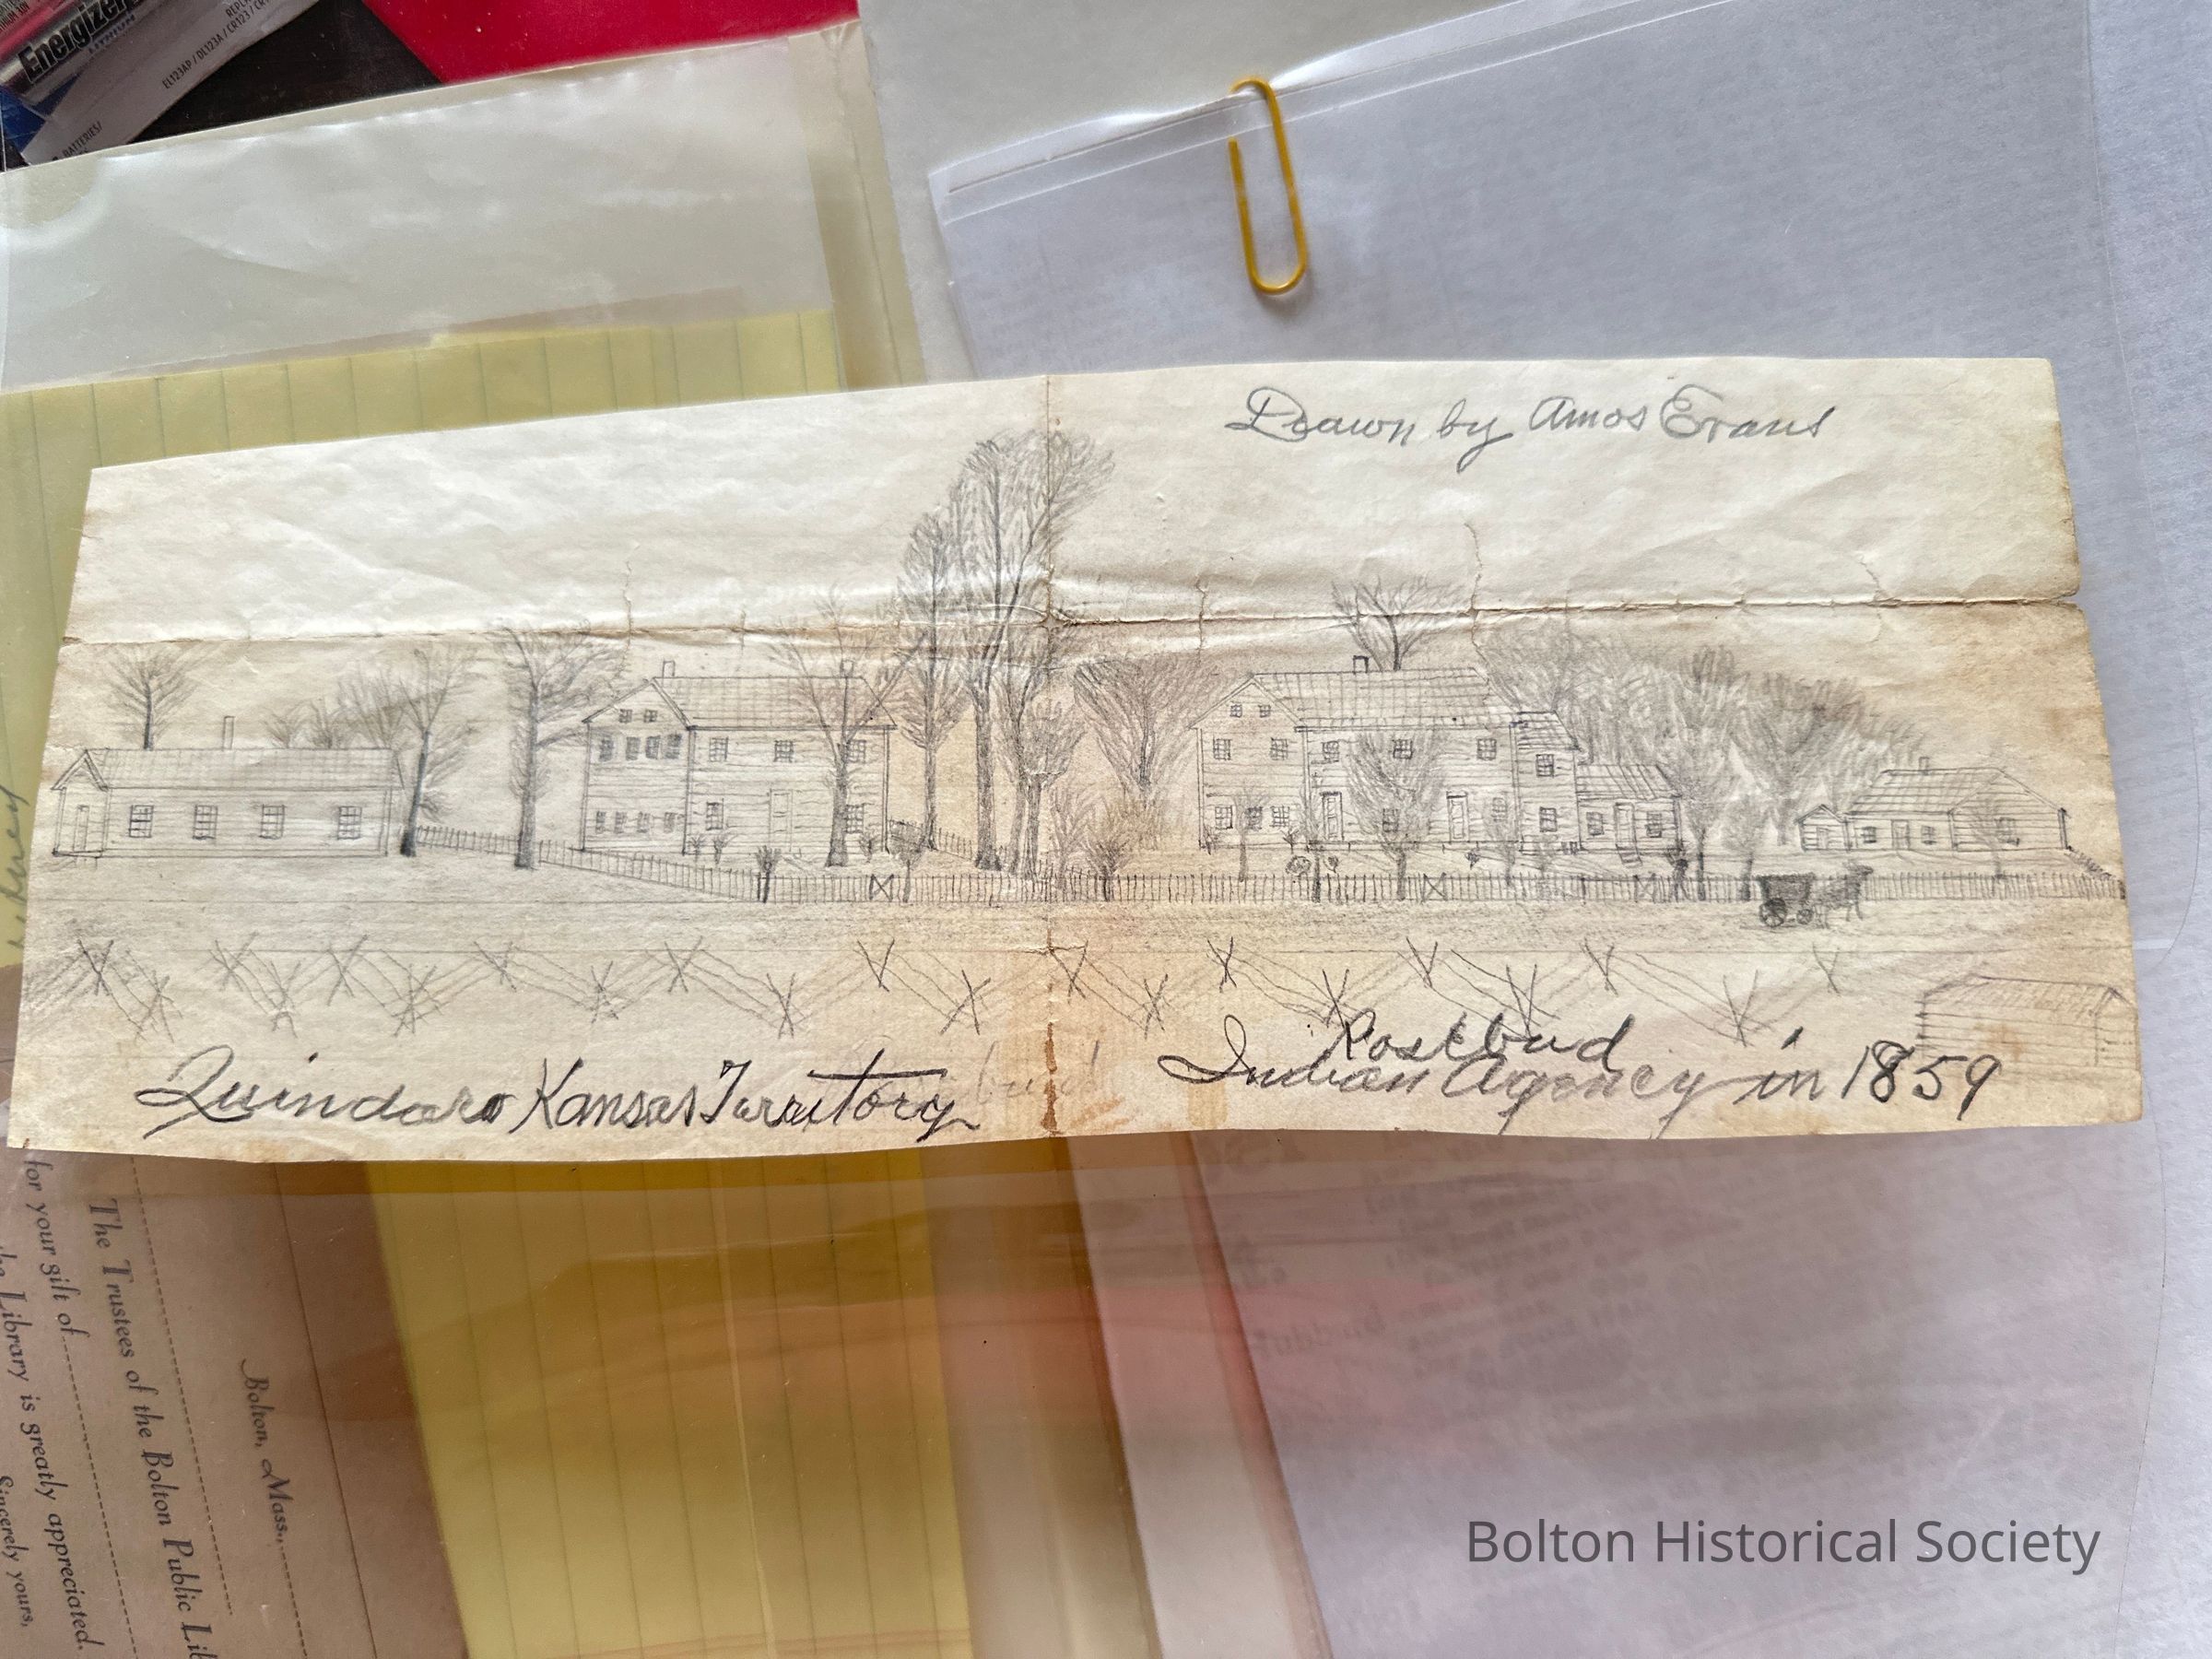 Energizer
LITHIUM
EL123AP / DL123A / CR123 /
BATTERIES/
Drawn by Amos Evans
Quindaro Kansas Territory
Rosebud
Indian Agency in 1859
Bolton, Mass.,
The Trustees of the Bolton Public
for your gift of
Library is greatly appreciated.
Sincerely yours,
Bolton Historical Society